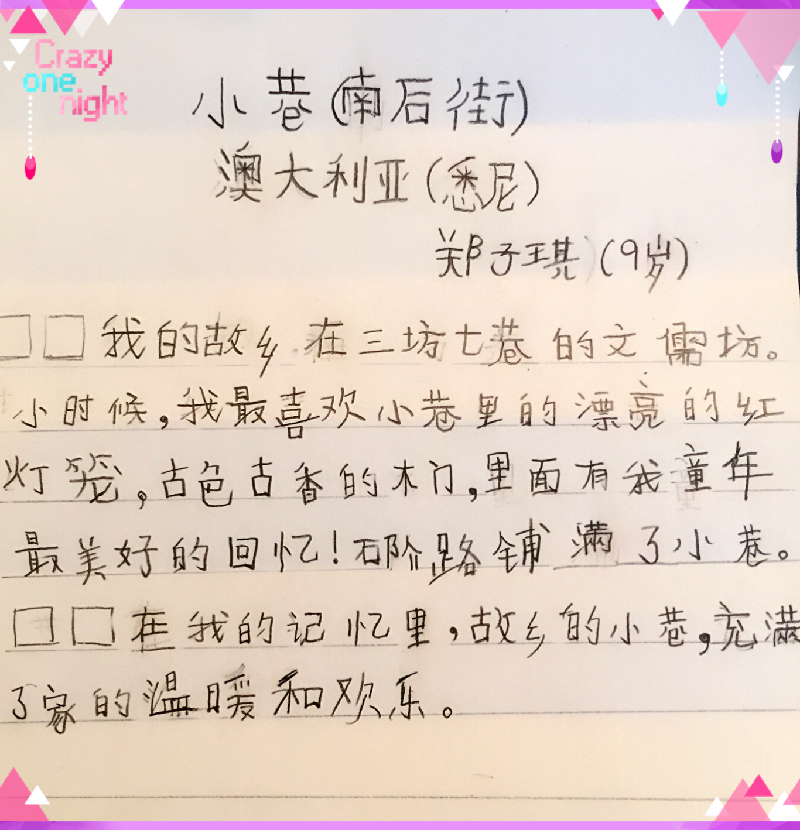 Crazy
one
night
小巷(南后街)
澳大利亚(悉尼)
郑子琪(9岁)
□□我的故乡在三坊七巷的文儒坊。
小时候,我最喜欢小巷里的漂亮的红
灯笼,古色古香的木门,里面有我童年
最美好的回忆!石阶路铺满了小巷。
□□在我的记忆里,故乡的小巷,充满
了家的温暖和欢乐。